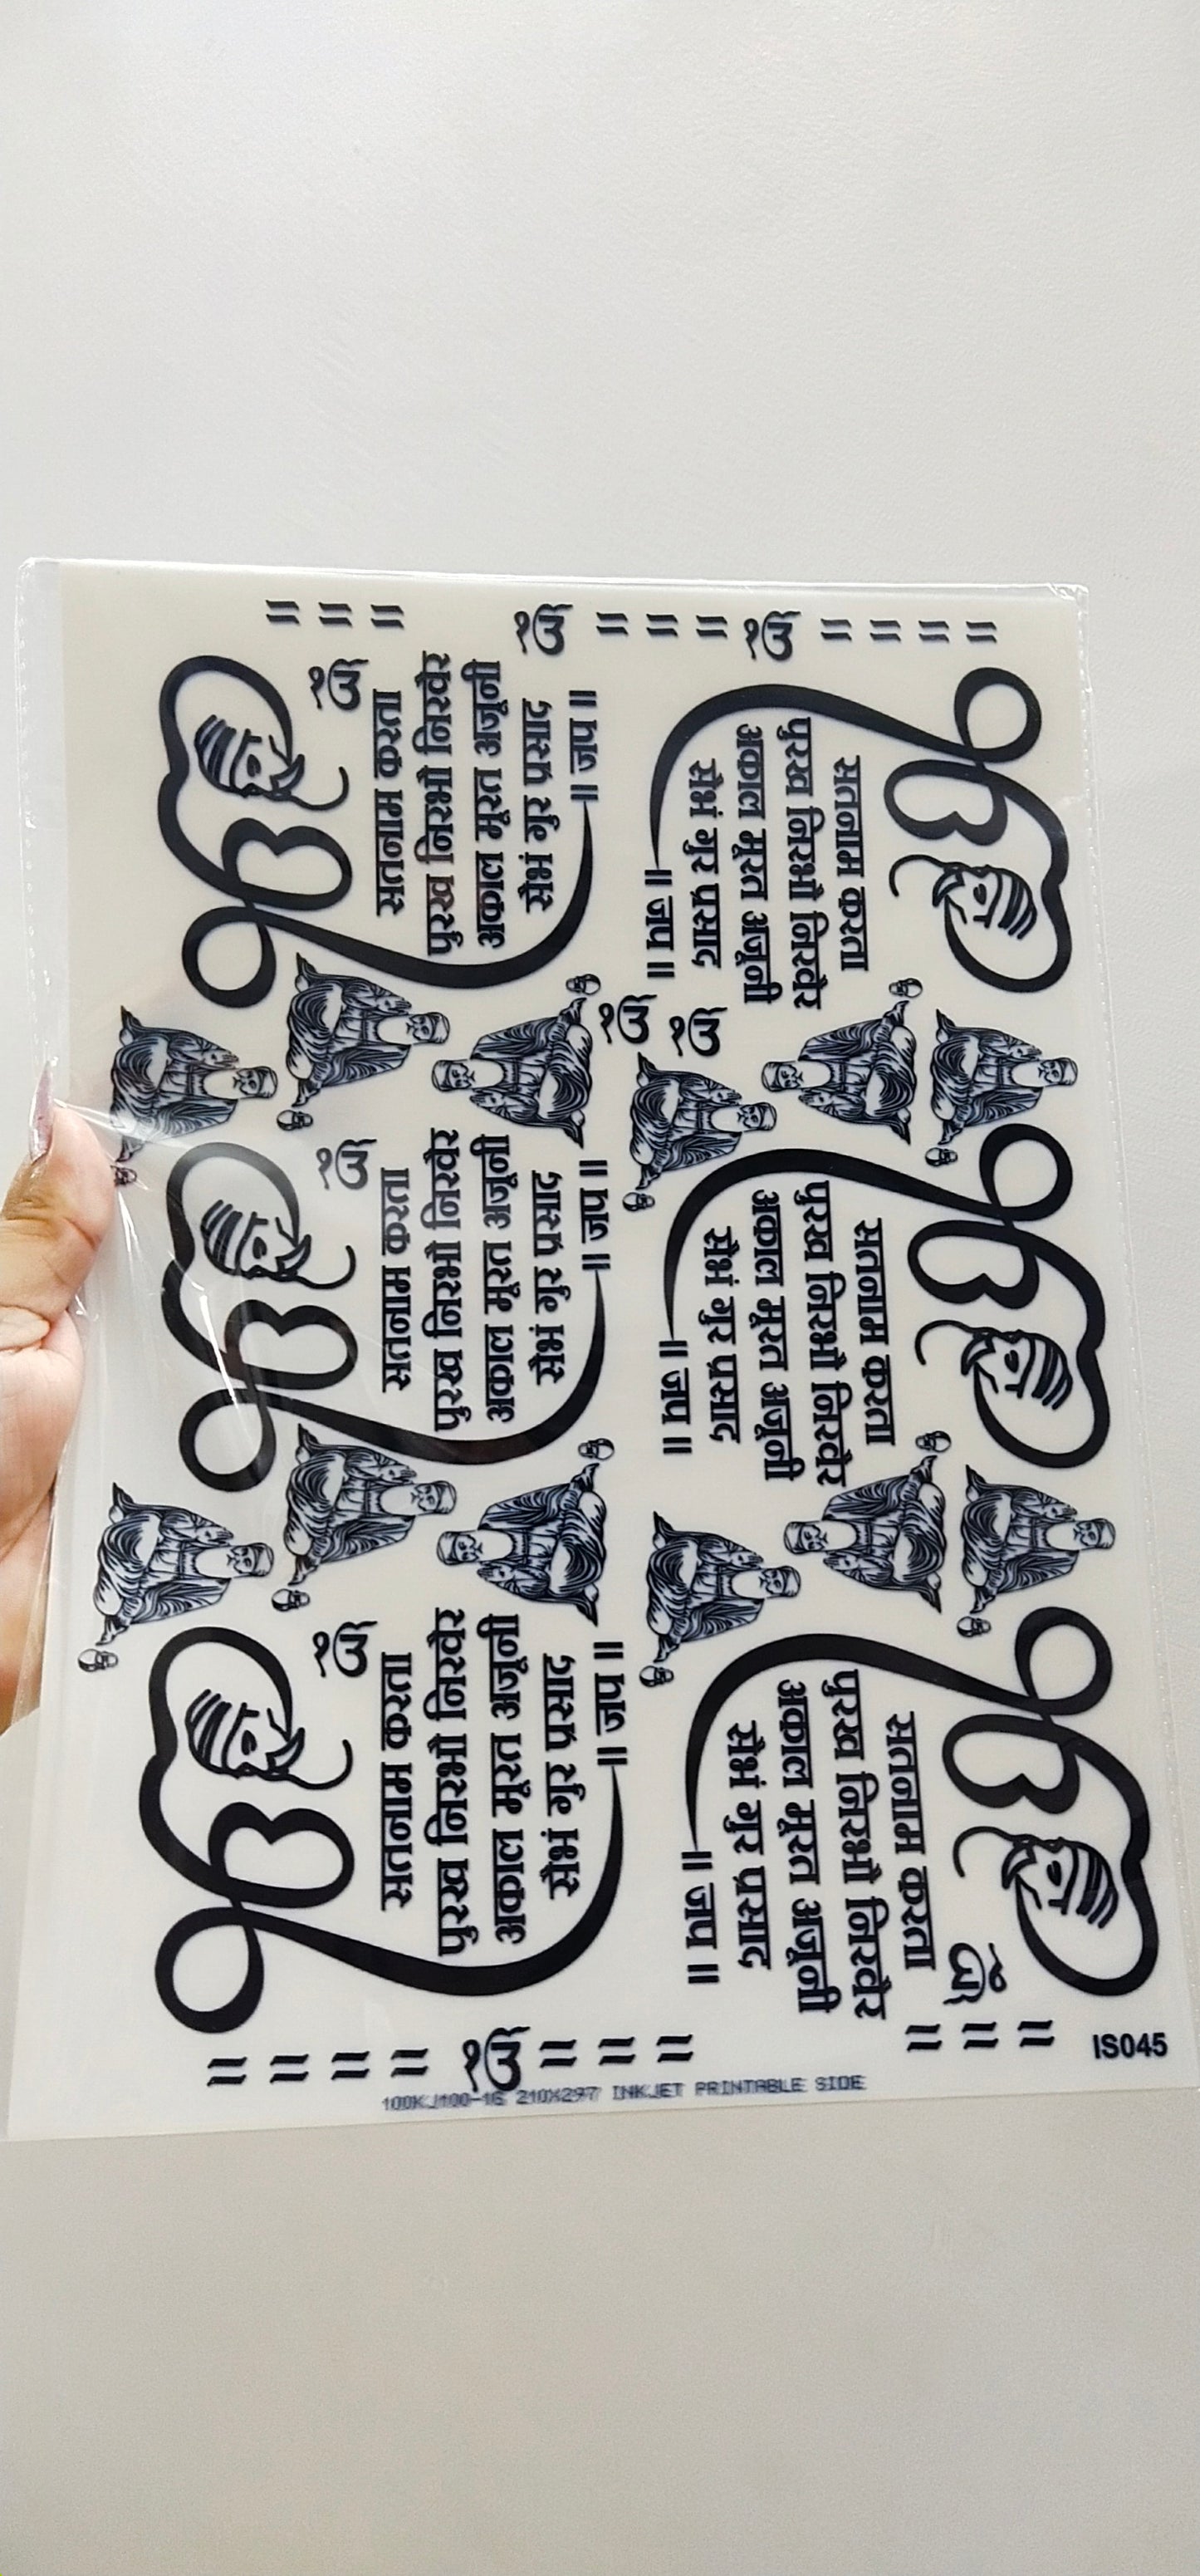 ੴ
ੴ
ੴ
सतनाम करता
पुरख निरभौ निरवैर
अकाल मूरत अजूनी
सैभं गुर प्रसाद
॥ जप ॥
सतनाम करता
पुरख निरभौ निरवैर
अकाल मूरत अजूनी
सैभं गुर प्रसाद
॥ जप ॥
ੴ
ੴ
ੴ
सतनाम करता
पुरख निरभौ निरवैर
अकाल मूरत अजूनी
सैभं गुर प्रसाद
॥ जप ॥
सतनाम करता
पुरख निरभौ निरवैर
अकाल मूरत अजूनी
सैभं गुर प्रसाद
॥ जप ॥
ੴ
सतनाम करता
पुरख निरभौ निरवैर
अकाल मूरत अजूनी
सैभं गुर प्रसाद
॥ जप ॥
सतनाम करता
पुरख निरभौ निरवैर
अकाल मूरत अजूनी
सैभं गुर प्रसाद
॥ जप ॥
ੴ
IS045
100KJ100-16 210X297 INKJET PRINTABLE SIDE